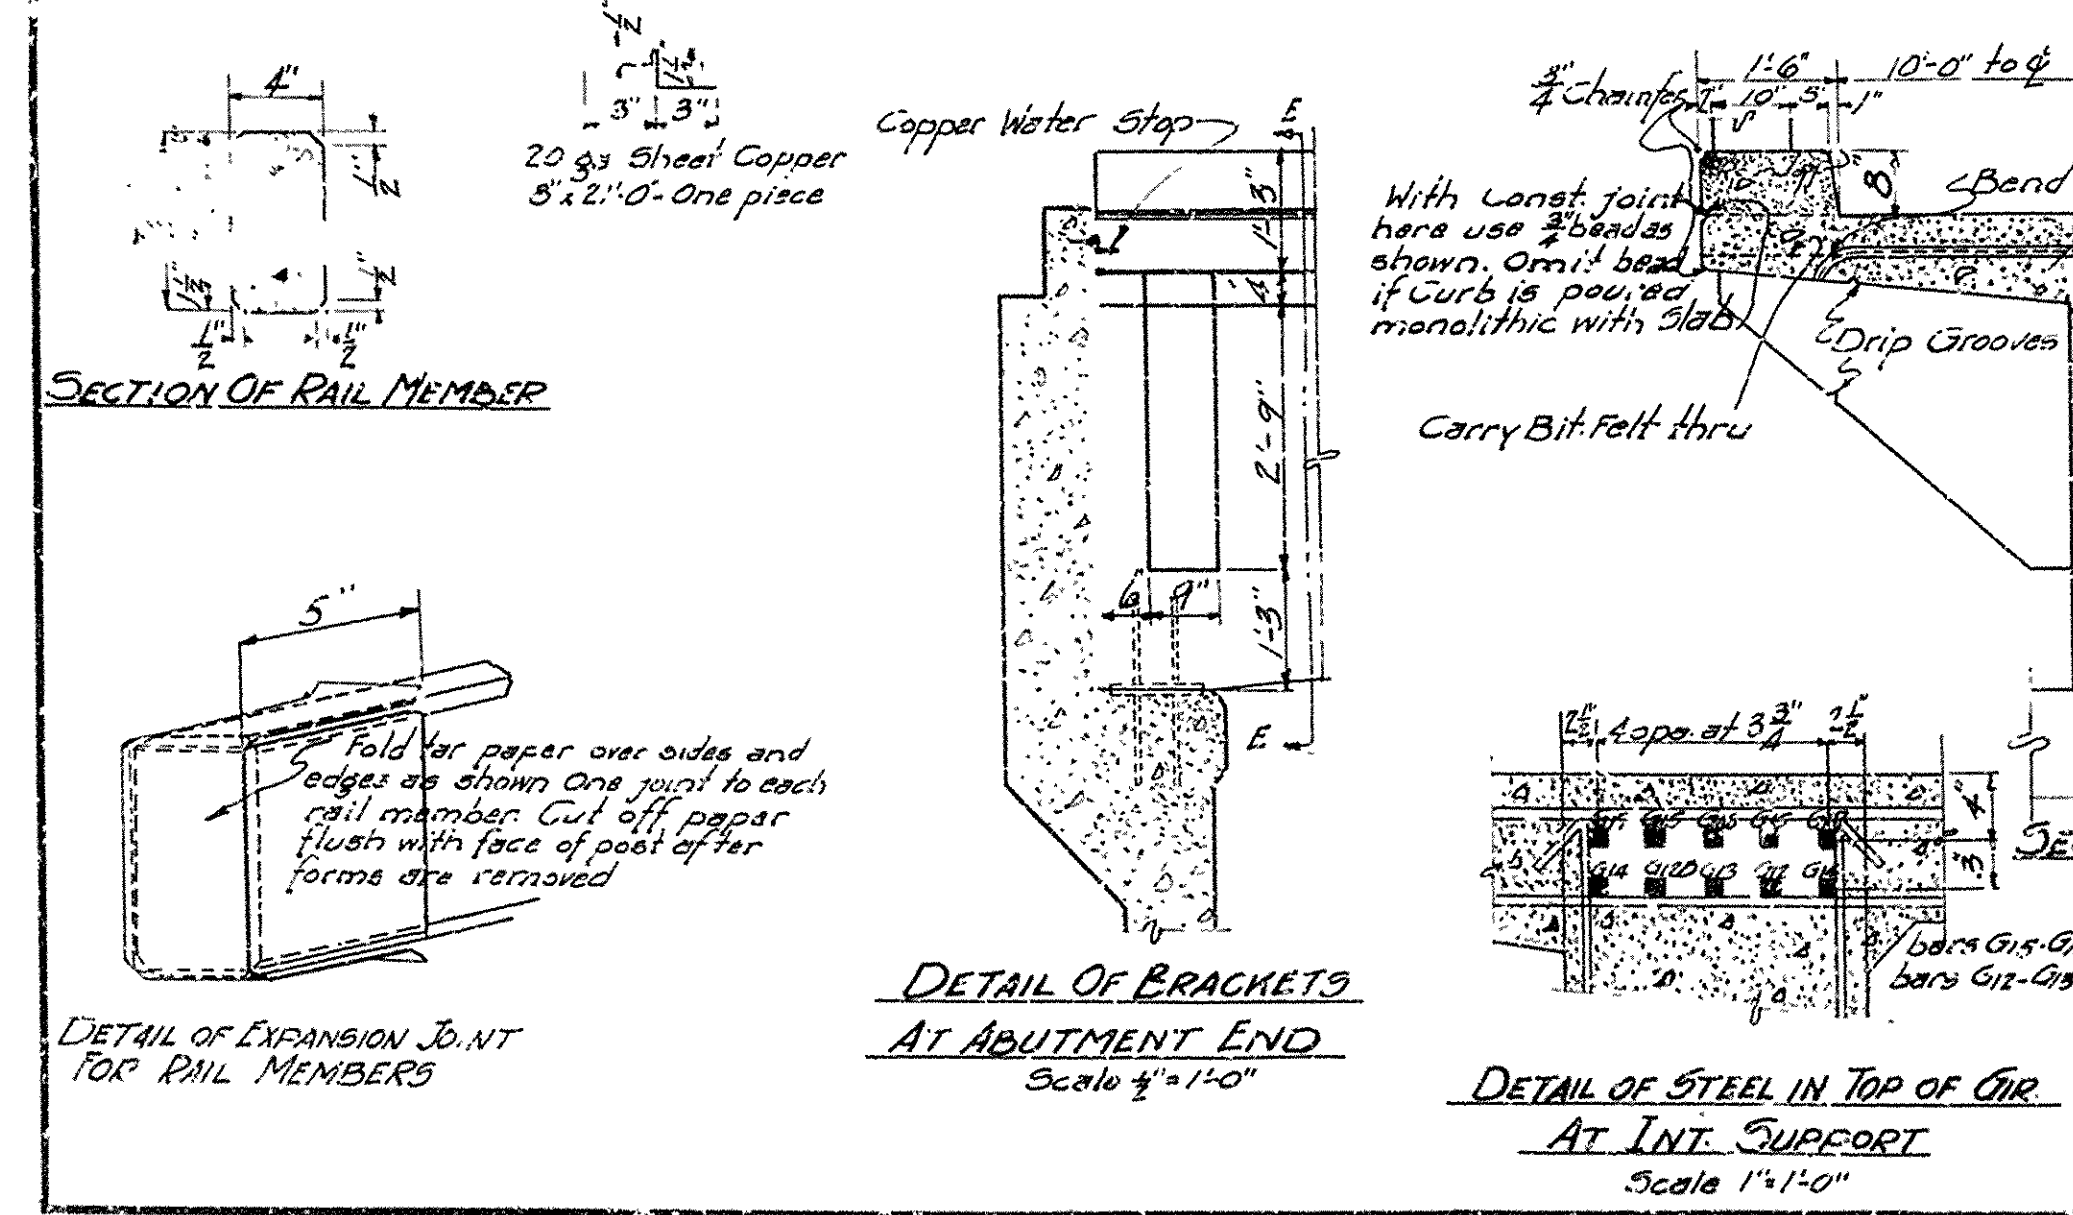 4"
1/2"
1/2"
1/2"
1/2"
SECTION OF RAIL MEMBER
3" 3"
20 ga Sheet Copper
One piece
Copper Water Stop
E
1'-3"
4"
2'-9"
6" 9"
1'-3"
E
DETAIL OF BRACKETS
AT ABUTMENT END
Scale 1/2"=1'-0"
5"
Fold tar paper over sides and
edges as shown One joint to each
rail member. Cut off paper
flush with face of post after
forms are removed
DETAIL OF EXPANSION JOINT
FOR RAIL MEMBERS
1'-6" 10'-0" to ℄
3/4" Chamfer 2" 10" 5" 1"
8"
Bend
With Const. joint
here use 3/4" bead as
shown. Omit bead
if Curb is poured
monolithic with Slab
Drip Grooves
Carry Bit. Felt thru
2 1/2" 4 spa. at 3 3/4" 2 1/2"
4"
3"
G15 G15
G14 G12 G13 G12 G14
bars G15-G1
bars G12-G13
DETAIL OF STEEL IN TOP OF GIR.
AT INT. SUPPORT
Scale 1"=1'-0"